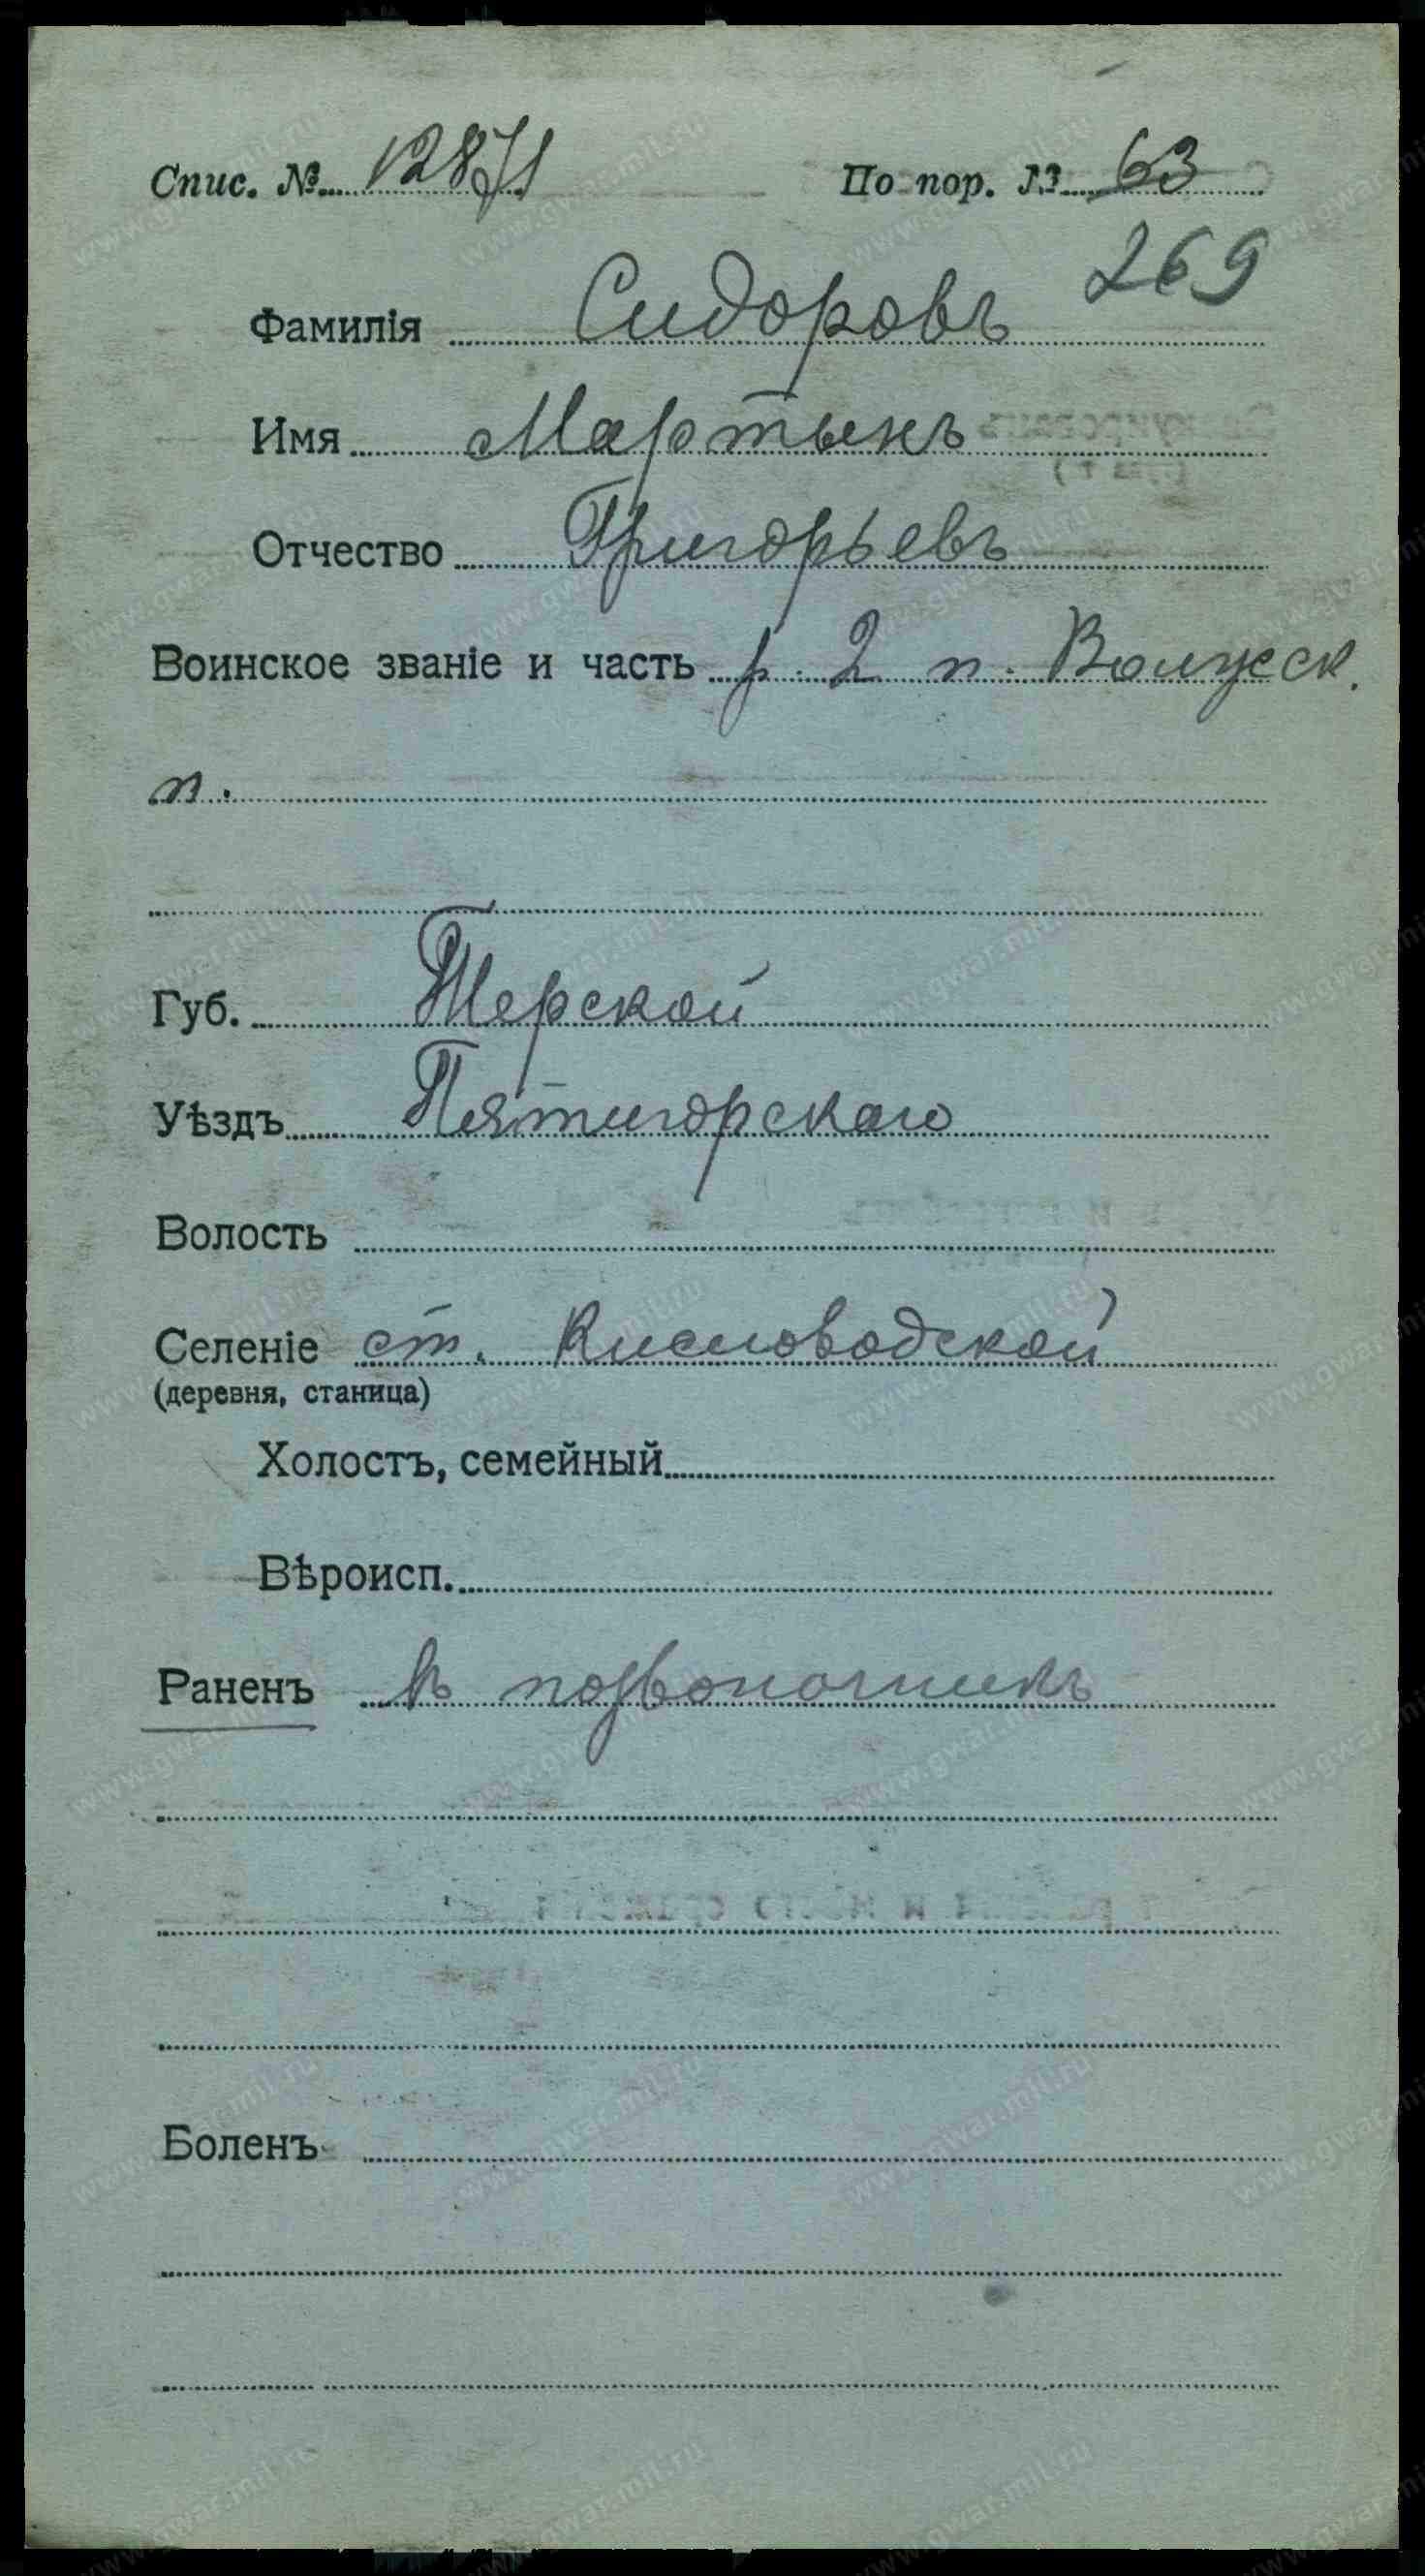 Спис. № 12871 По пор. № 63
269
Фамилія Сидоровъ
Имя Мартынъ
Отчество Григорьевъ
Воинское званіе и часть р. 2 п. Волжск.
п.
Губ. Терской
Уѣздъ Пятигорскаго
Волость
Селеніе ст. Кисловодской
(деревня, станица)
Холостъ, семейный
Вѣроисп.
Раненъ въ позвоночникъ
Боленъ